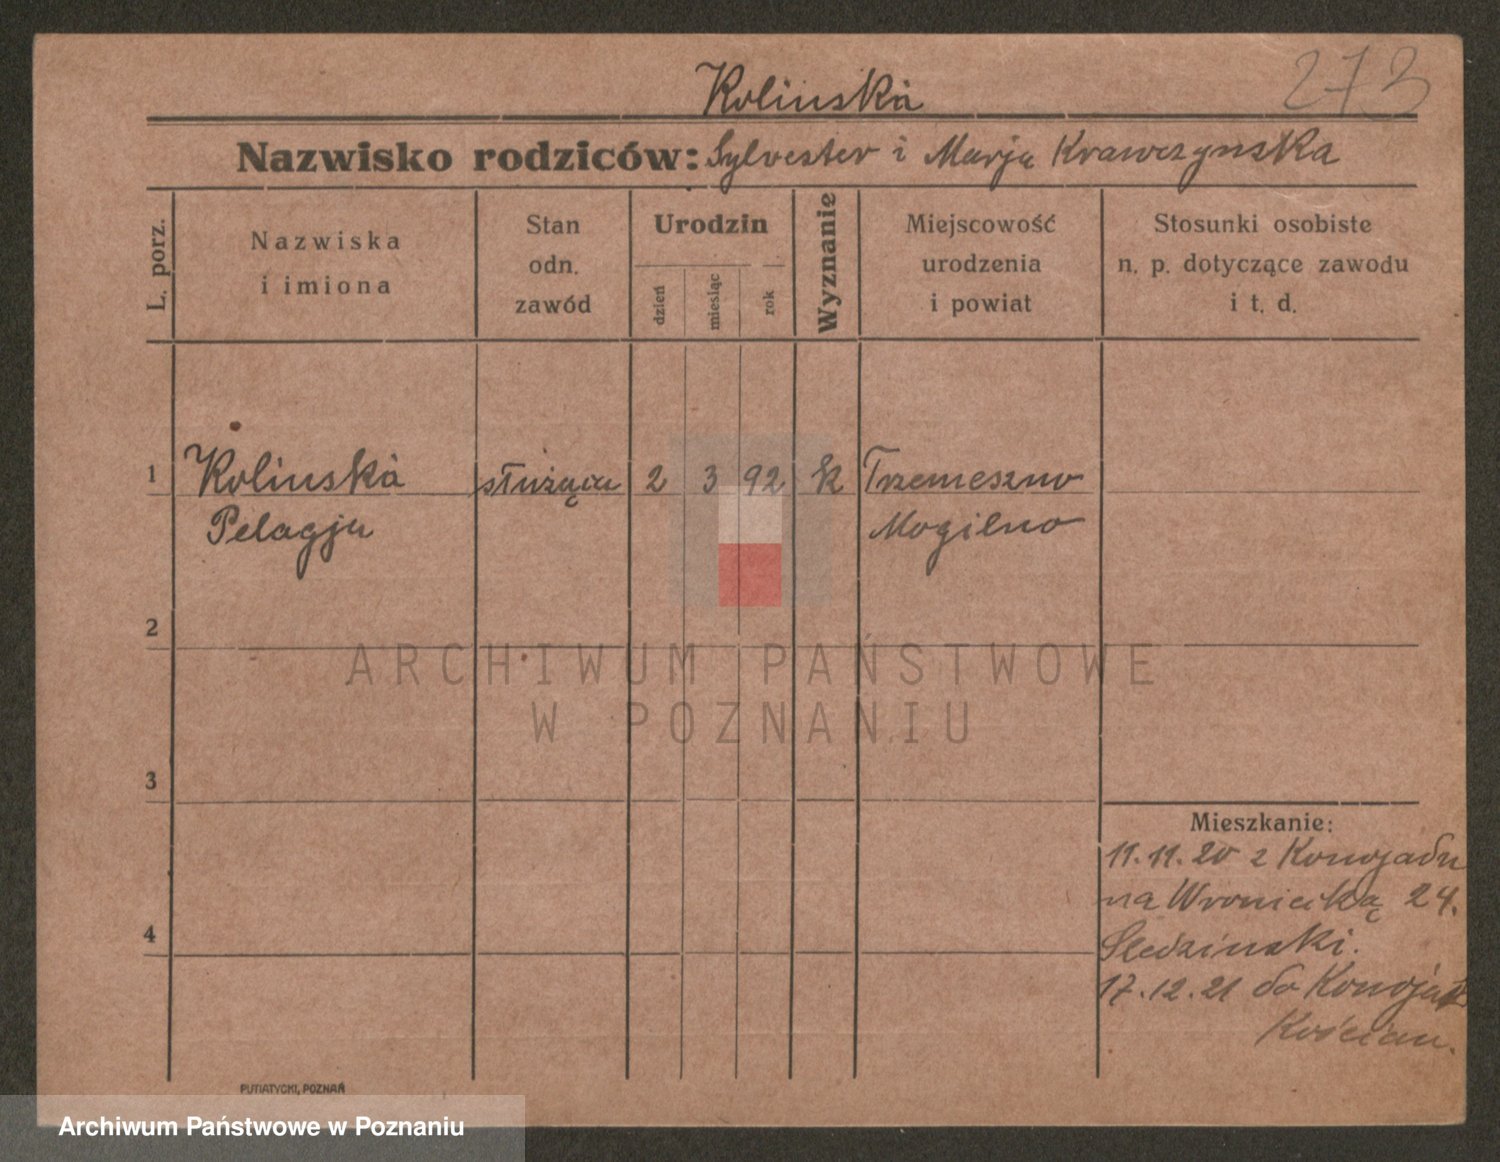 Kolinska
273
Nazwisko rodziców: Sylvester i Marja Krawczynska
L. porz.
Nazwiska
i imiona
Stan
odn.
zawód
Urodzin
dzień
miesiąc
rok
Wyznanie
Miejscowość
urodzenia
i powiat
Stosunki osobiste
n. p. dotyczące zawodu
i t. d.
1 Kolinska służąca 2 3 92 k Trzemeszno
Pelagja Mogilno
2
ARCHIWUM PAŃSTWOWE
W POZNANIU
3
Mieszkanie:
11.11.20 z Konojadu
na Wroniecką 24.
Sledzinski.
4
17.12.21 do Konojad
Kościan.
PUTIATYCKI, POZNAŃ
Archiwum Państwowe w Poznaniu